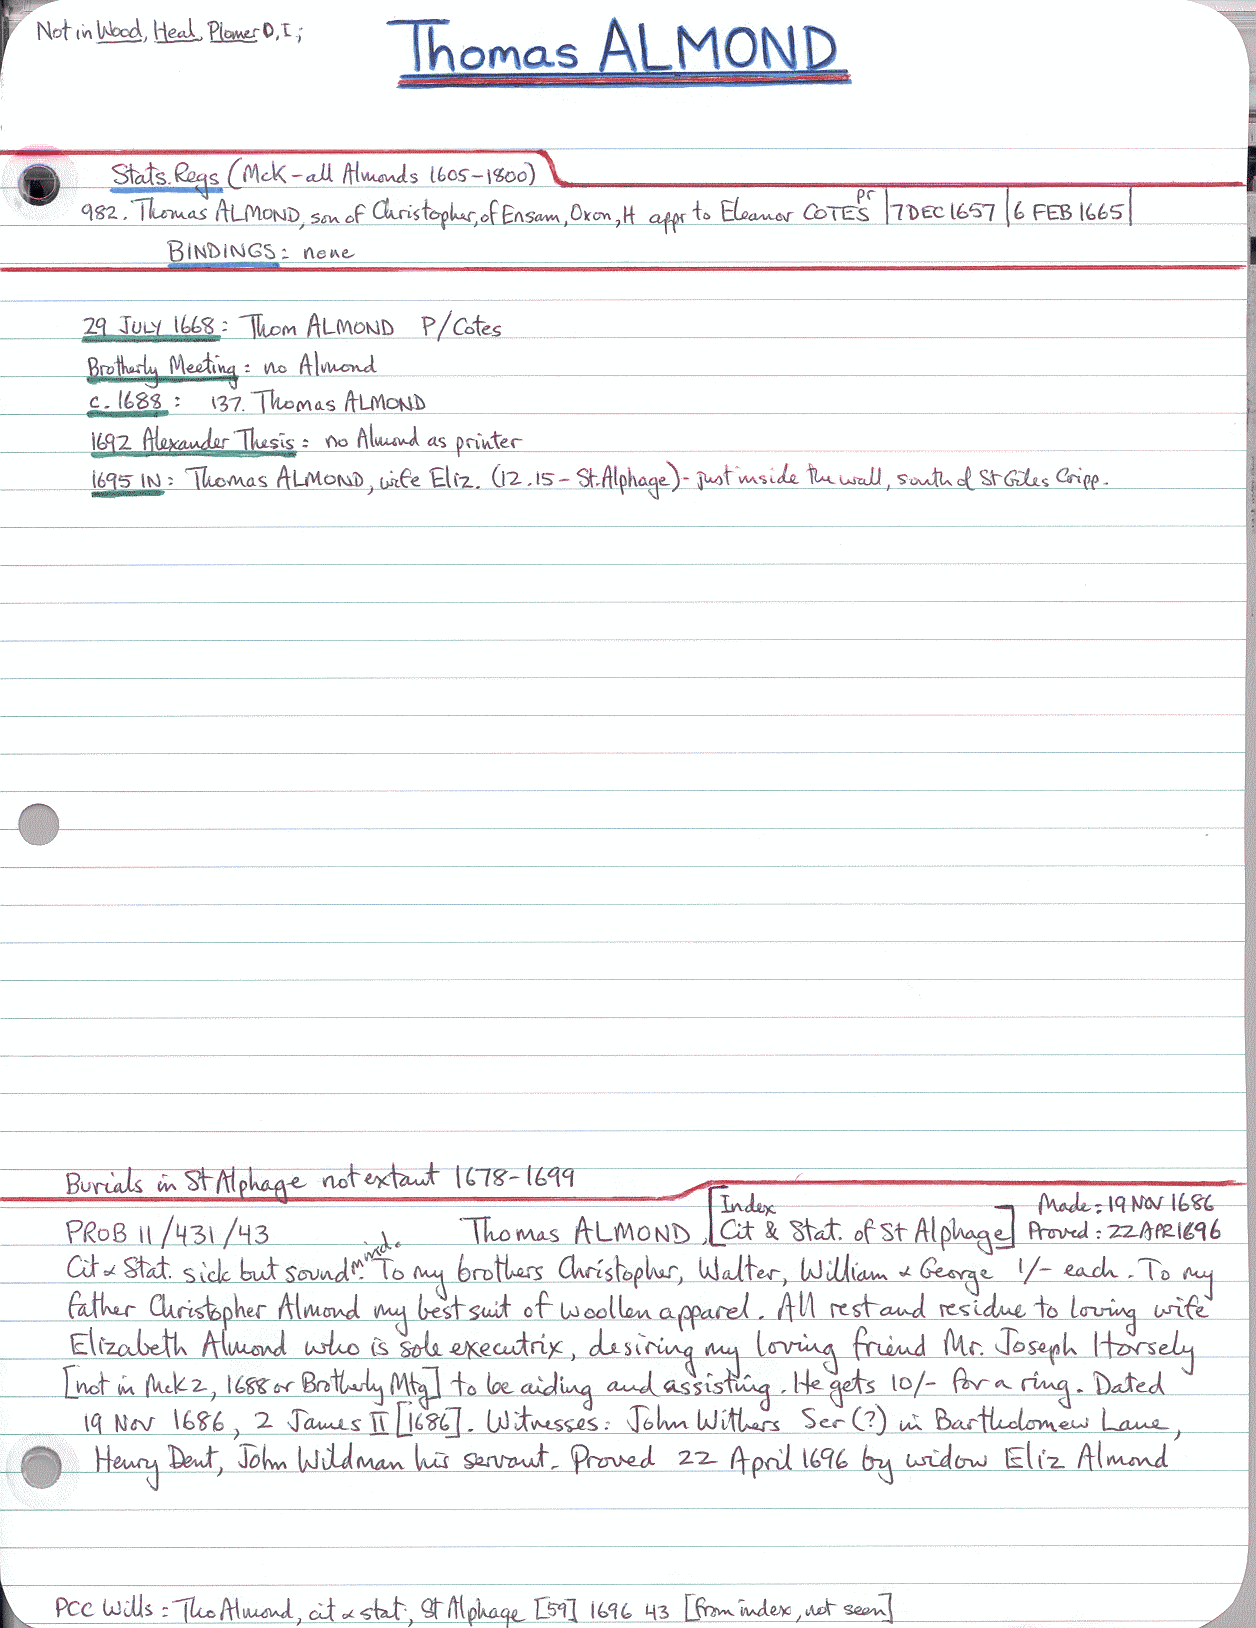 Not in Wood, Heal, Plomer D, I;
Thomas ALMOND
Stats. Regs (McK - all Almonds 1605-1800)
982. Thomas ALMOND, son of Christopher, of Ensam, Oxon, H appr to Eleanor COTES pr | 7 DEC 1657 | 6 FEB 1665 |
BINDINGS: none
29 JULY 1668: Thom ALMOND P/Cotes
Brotherly Meeting: no Almond
c. 1688: 137. Thomas ALMOND
1692 Alexander Thesis: no Almond as printer
1695 IN: Thomas ALMOND, wife Eliz. (12.15 - St. Alphage) - just inside the wall, south of St Giles Cripp.
Burials in St Alphage not extant 1678-1699
[Index Made: 19 NOV 1686
PROB 11/431/43 Thomas ALMOND, Cit & Stat. of St Alphage] Proved: 22 APR 1696
Cit & Stat. sick but sound mind. To my brothers Christopher, Walter, William & George 1/- each. To my
father Christopher Almond my best suit of woollen apparel. All rest and residue to loving wife
Elizabeth Almond who is sole executrix, desiring my loving friend Mr. Joseph Horsely
[not in McK 2, 1688 or Brotherly Mtg] to be aiding and assisting. He gets 10/- for a ring. Dated
19 Nov 1686, 2 James II [1686]. Witnesses: John Withers Ser (?) in Bartholomew Lane,
Henry Dent, John Wildman his servant. Proved 22 April 1696 by widow Eliz Almond
PCC Wills: Tho Almond, cit & stat, St Alphage [59] 1696 43 [from index, not seen]